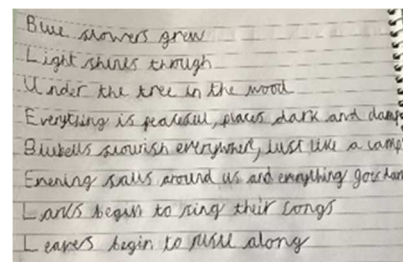 Blue flowers grew
Light shines through
Under the tree in the wood
Everything is peaceful, places dark and damp
Bluebells flourish everywhere, just like a lamp
Evening falls around us and everything goes dark
Larks begin to sing their songs
Leaves begin to rustle along